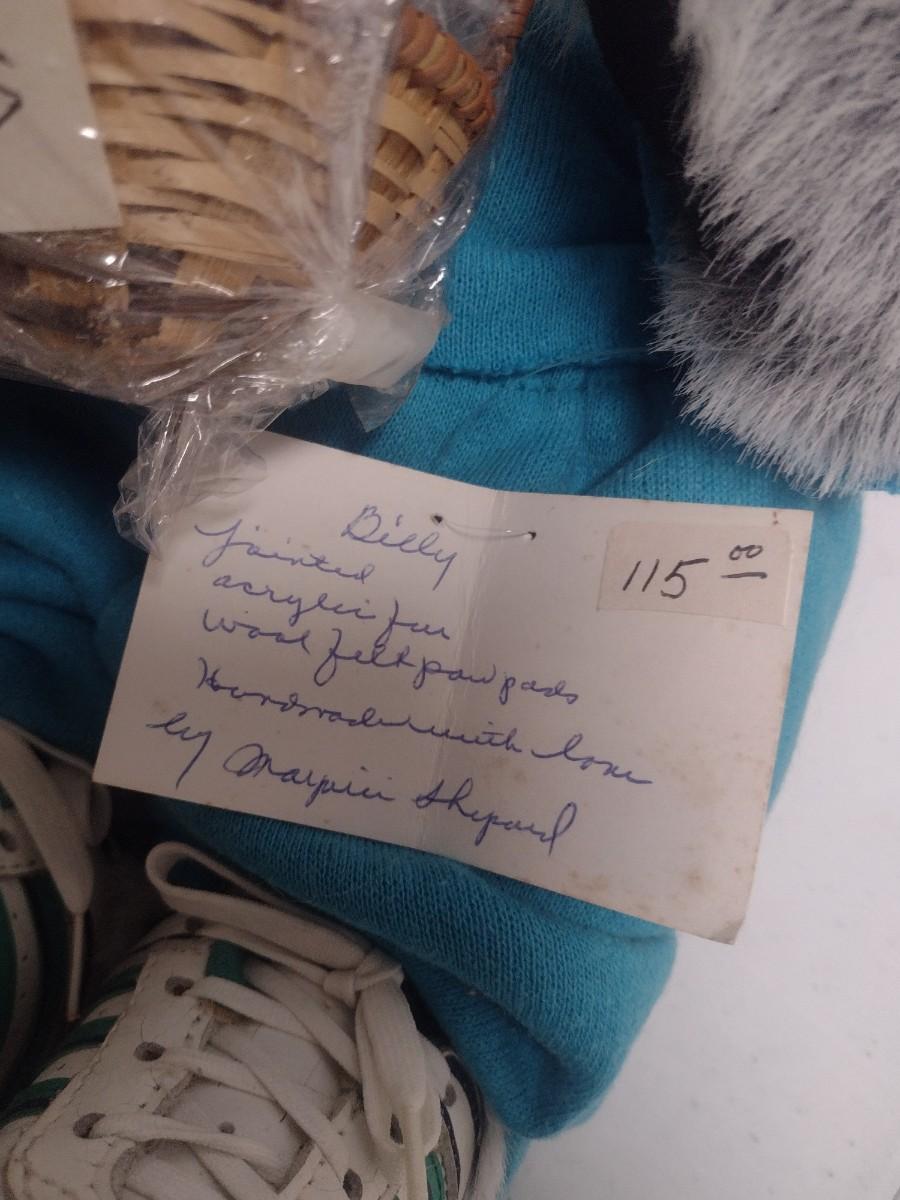 Billy
115 00
jointed
acrylic fur
wool felt paw pads
Handmade with love
by Shepard